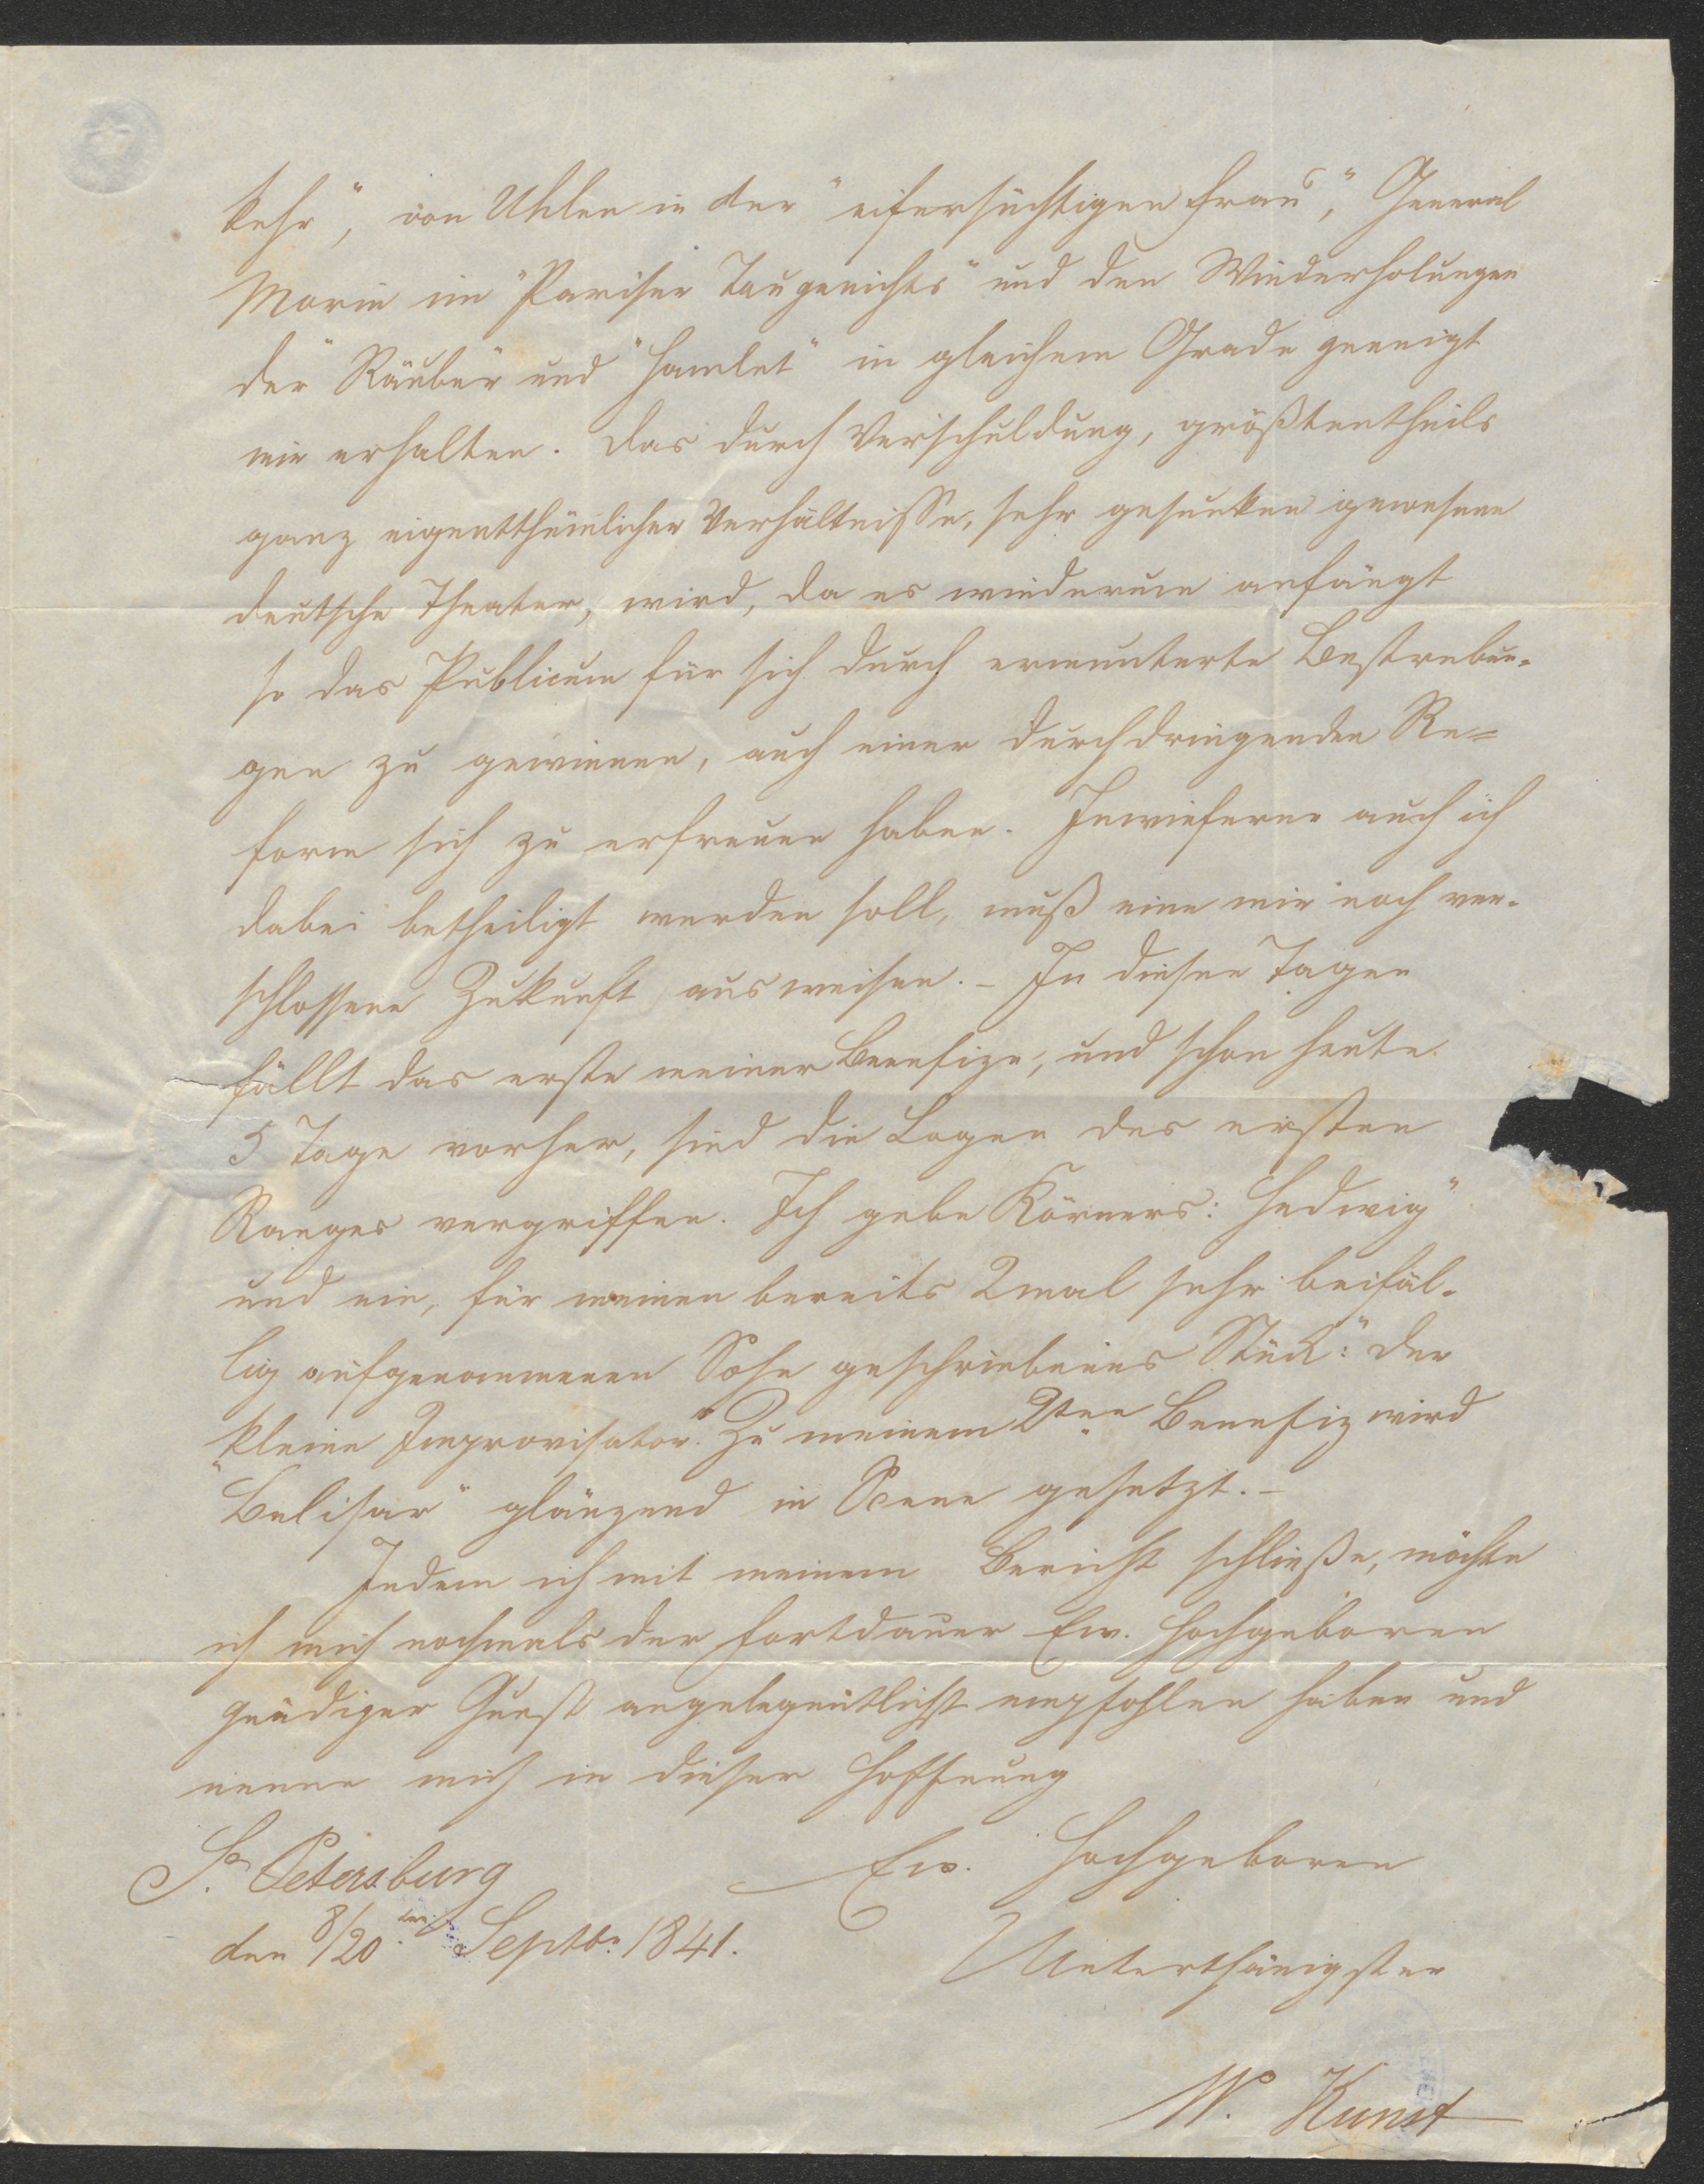 kehr", von Uhlen in der "eifersüchtigen Frau", General
Morin im "Pariser Taugenichts" und den Wiederholungen
der "Räuber" und "Hamlet" in gleichem Grade geneigt
mir erhalten. Das durch Verschuldung, größtentheils
ganz eigentthümlicher Verhältnisse, sehr gesunken gewesene
deutsche Theater, wird, da es wiederum anfängt
so das Publicum für sich durch ermunterte Bestrebun-
gen zu gewinnen, auch einer durchdringenden Re=
form sich zu erfreuen haben. Inwieferne auch ich
dabei betheiligt werden soll, muß eine mir noch ver-
schlossene Zukunft ausweisen. – In diesen Tagen
fällt das erste meiner Benefize, und schon heute
5 Tage vorher, sind die Logen des ersten
Ranges vergriffen. Ich gebe Körners: Hedwig"
und ein, für meinen bereits 2mal sehr beifäl-
lig aufgenommenen Sohn geschriebenes Stück: "Der
kleine Improvisator." Zu meinem 2ten Benefiz wird
"Belisar" glänzend in Scene gesetzt. –
Indem ich mit meinem Bericht schließe, möchte
ich mich nochmals der Fortdauer Ew. Hochgeboren
gnädiger Gunst angelegentlichst empfohlen haben und
nenne mich in dieser Hoffnung
St. Petersburg
Ew. Hochgeboren
den 8/20ten Septbr 1841.
Unterthänigster
W. Kunst